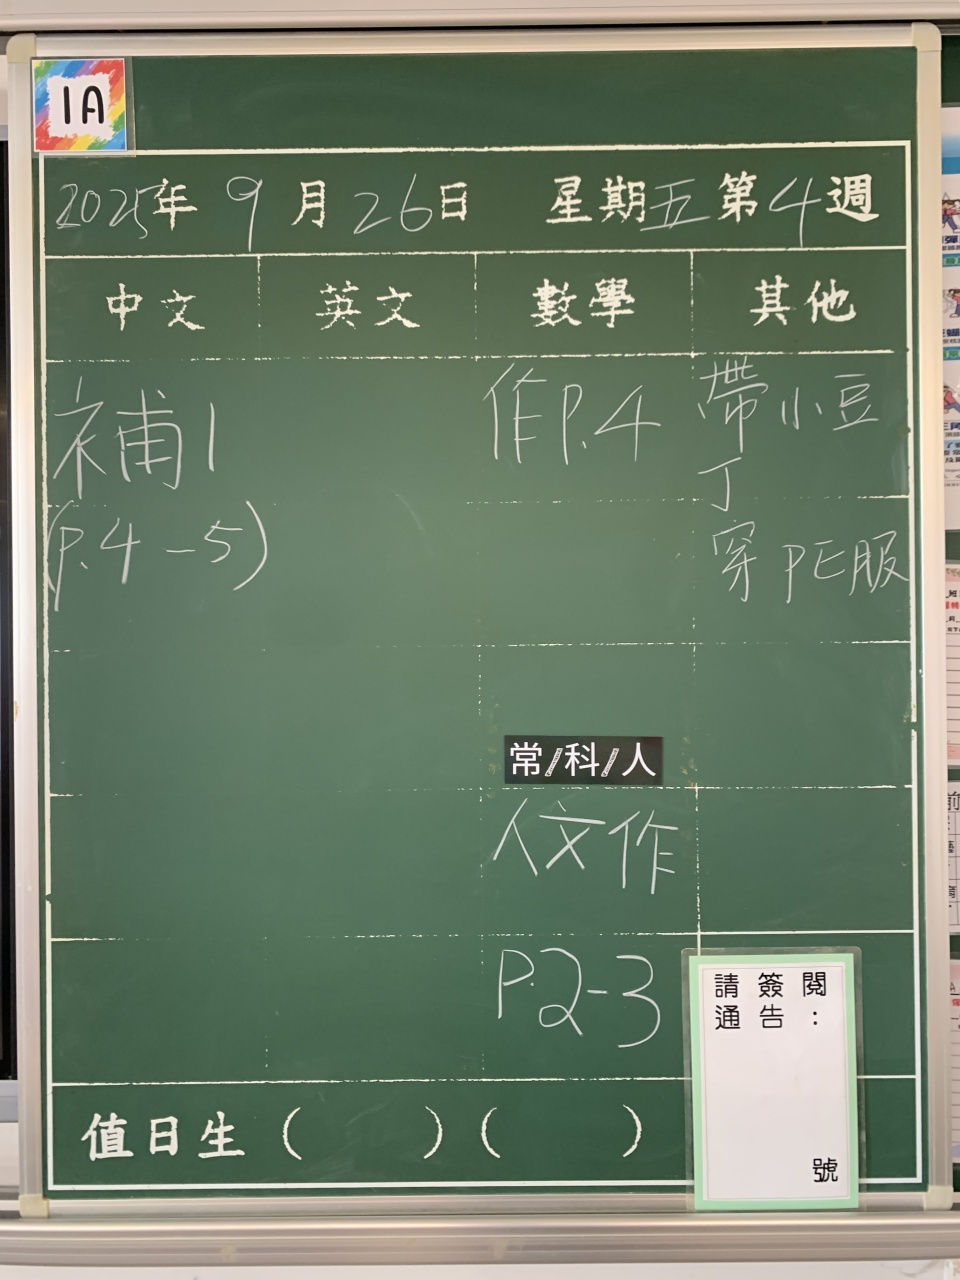 1A
2025年 9月26日 星期五第4週
中文 英文 數學 其他
補1 作P.4 帶小豆
丁
(P.4-5) 穿PE服
常/科/人
人文作
P.2-3
請簽閱
通告：
號
值日生（ ）（ ）